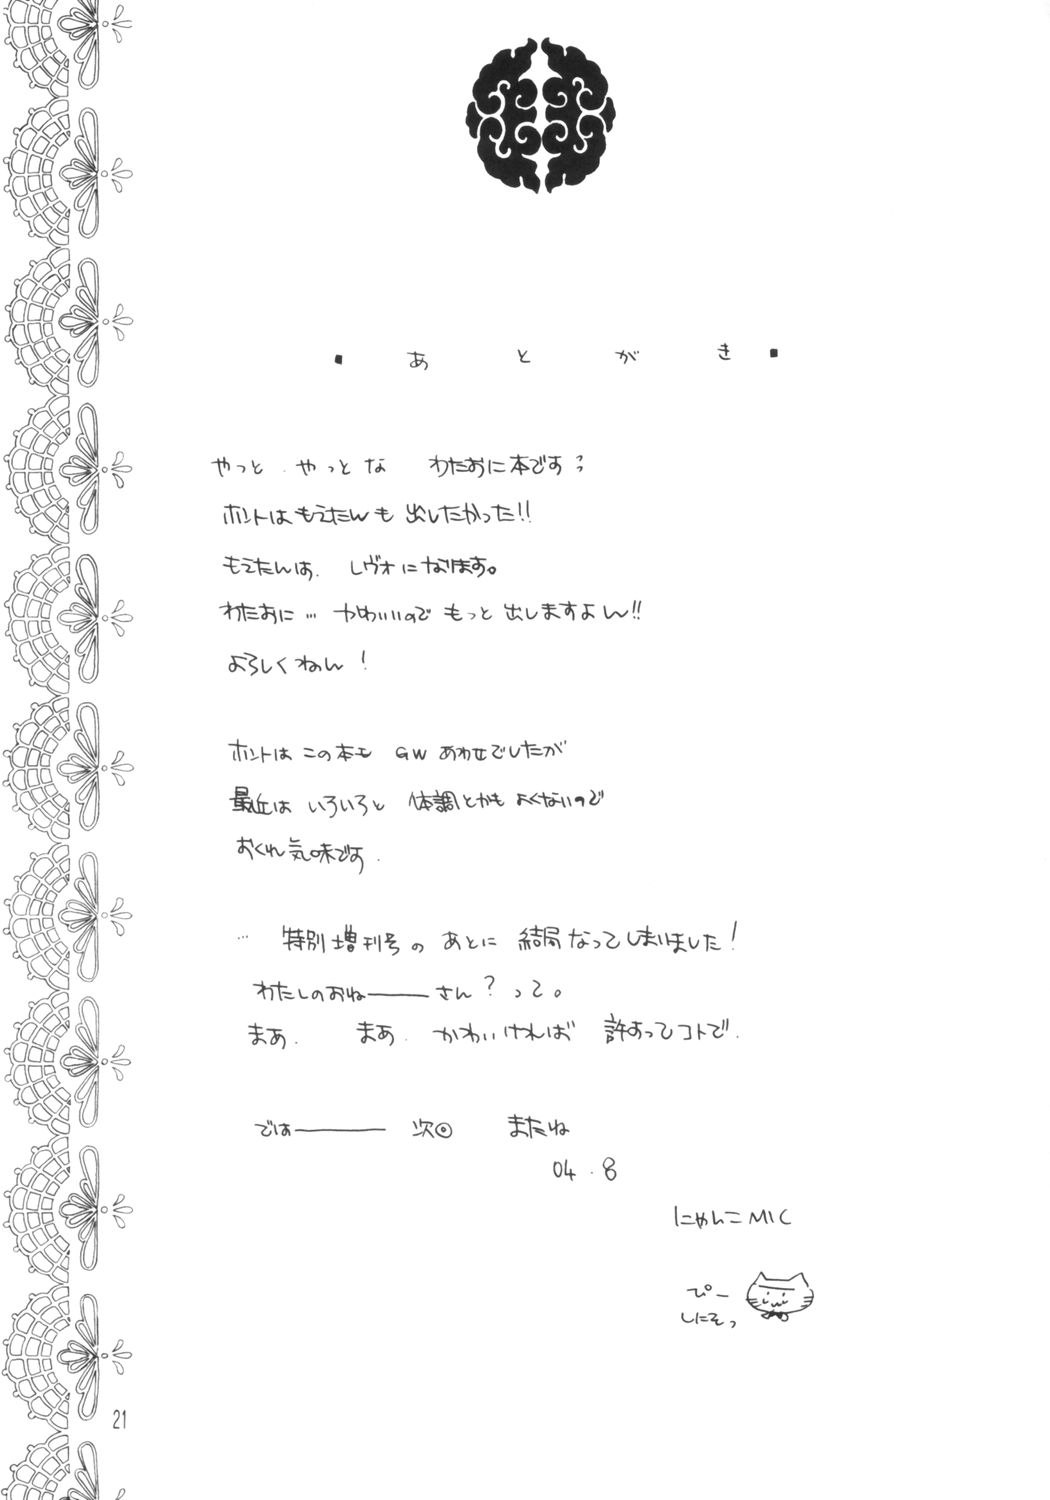 ■ あとがき ■
やっと やっとな わたおに本です
ホントはもえたんも 出したかった!!
もえたんは、レヴォになります。
わたおに… かわいいので もっと出しますよん!!
よろしくねん!
ホントは この本も GWあわせでしたが
最近は いろいろと 体調とかも よくないので
おくれ気味です.
… 特別増刊号の あとに 結局なってしまいました!
わたしのおねーーさん? って。
まあ. まあ. かわいければ 許すってコトで.
ではーー 次回 またね
04.8
にゃんこMIC
ぴー
しにそっ
21